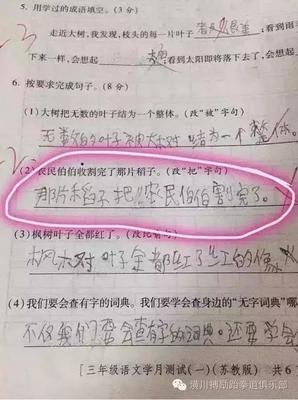 5. 用学过的成语填空。(3 分)
走近大树,我发现,枝头的每一片叶子
不一样,会想起        ;看到太阳即将落下去了,会想起
6. 按要求完成句子。(8 分)
(1) 大树把无数的叶子结为一个整体。(改“被”字句)
无数的叶子被大树结为一个整体。
(2) 农民伯伯收割完了那片稻子。(改“把”字句)
那片稻子把农民伯伯割完了。
(3) 枫树叶子全都红了。(改比喻句)
枫树叶子全都红了红的像
(4) 我们要会查有字的词典。我们要学会查身边的“无字词典”
不仅我们要会查有字的词典。还要学会
[三年级语文学月测试(一)(苏教版)    共6
潢川搏励跆拳道俱乐部